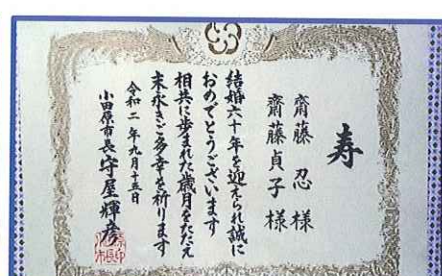 寿
齋藤 忍 様
齋藤 貞子 様
結婚六十年を迎えられ誠に
おめでとうございます
相共に歩まれた歳月をたたえ
末永きご多幸を祈ります
令和二年九月十五日
小田原市長 守屋輝彦